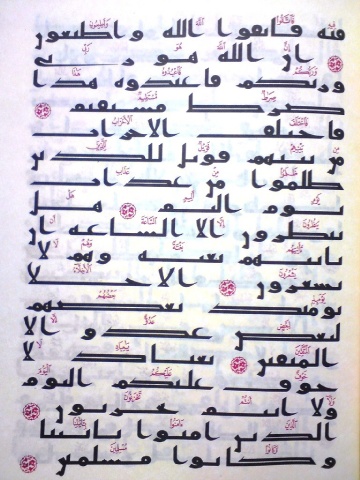 فيه فاتقوا الله واطيعون
ان الله هو ربي
وربكم فاعبدوه هذا
صرط مستقيم
فاختلف الاحزاب
من بينهم فويل للذين
ظلموا من عذاب
يوم اليم هل
ينظرون الا الساعة ان
تاتيهم بغتة وهم لا
يشعرون الاخلا
يومئذ بعضهم
لبعض عدو الا
المتقين يعباد لا
خوف عليكم اليوم
ولا انتم تحزنون
الذين امنوا بايتنا
وكانوا مسلمين